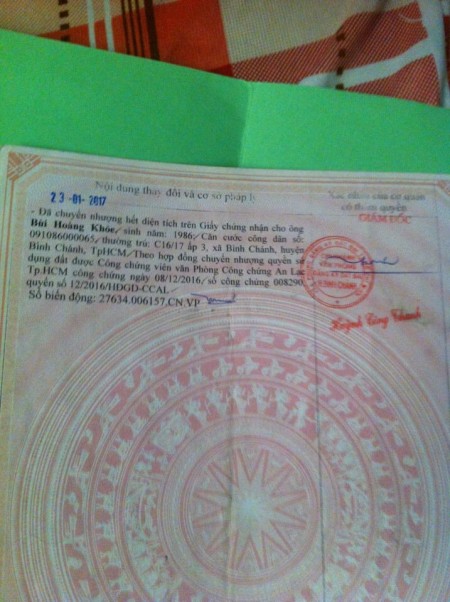 Nội dung thay đổi và cơ sở pháp lý
Xác nhận của cơ quan
có thẩm quyền
GIÁM ĐỐC
23-01-2017
- Đã chuyển nhượng hết diện tích trên Giấy chứng nhận cho ông
Bùi Hoàng Khỏe/ sinh năm: 1986/ Căn cước công dân số:
091086000065/ thường trú: C16/17 ấp 3, xã Bình Chánh, huyện
Bình Chánh, TpHCM/Theo hợp đồng chuyển nhượng quyền sử
dụng đất được Công chứng viên văn Phòng Công chứng An Lạc
Tp.HCM công chứng ngày 08/12/2016/ số công chứng 008290
quyển số 12/2016/HDGD-CCAL/
Số biến động: 27634.006157.CN.VP
Huỳnh Công Thanh